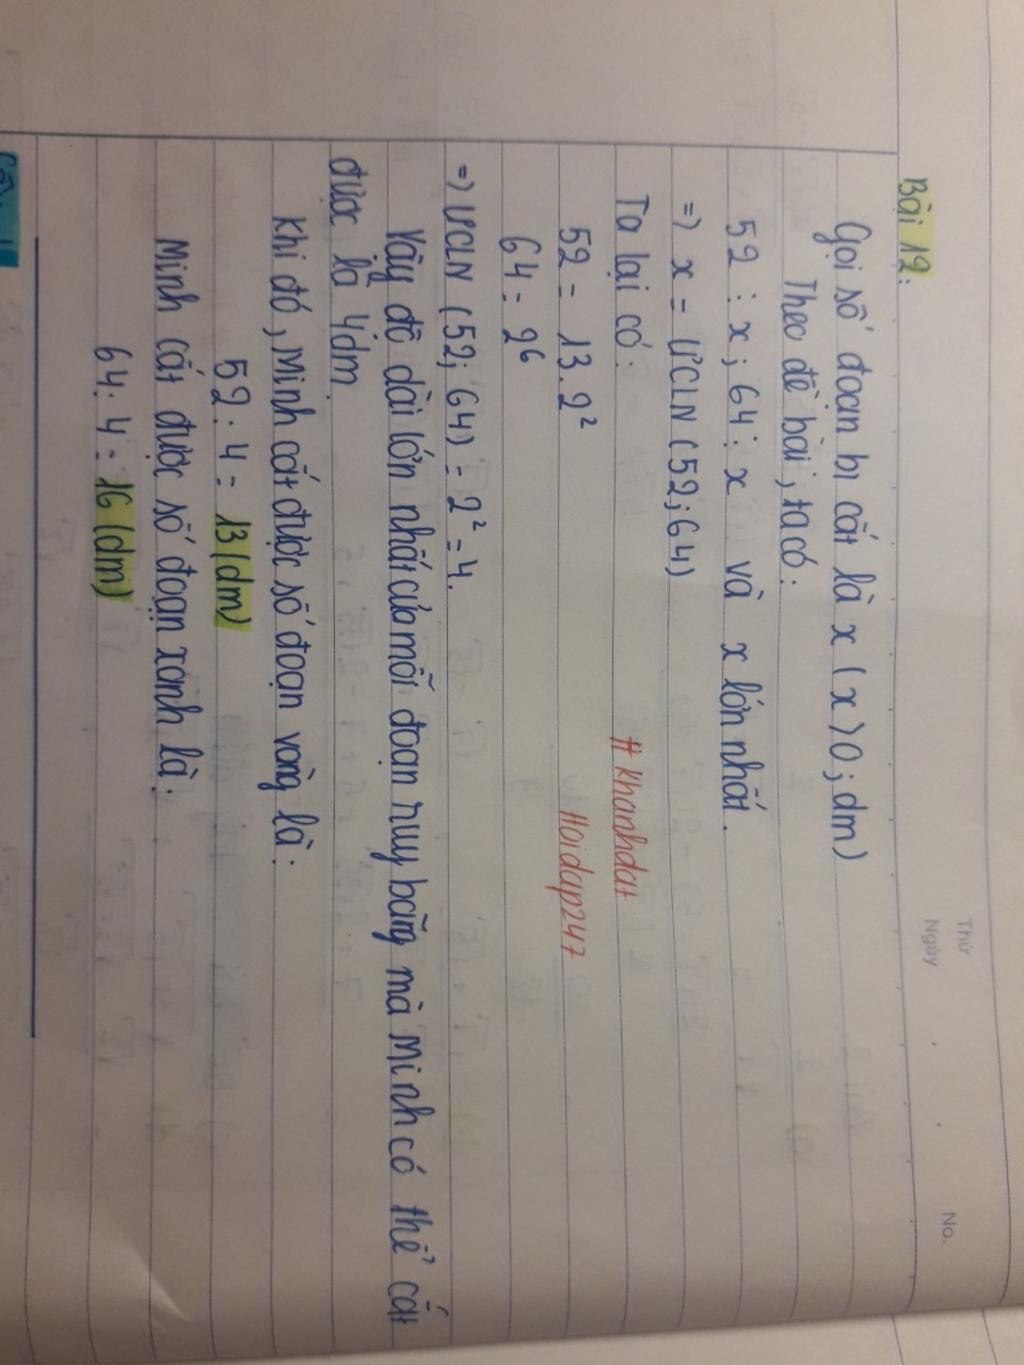 Thứ
Ngày
No.
Bài 12:
Gọi số đoạn bị cắt là x (x > 0; dm)
Theo đề bài, ta có:
52 : x; 64 : x và x lớn nhất.
=> x = ƯCLN (52; 64)
Ta lại có: # Khanhdat
52 = 13. 2² Hoidap247
64 = 2⁶
=> ƯCLN (52; 64) = 2² = 4.
Vậy độ dài lớn nhất của mỗi đoạn ruy băng mà Minh có thể cắt
được là 4dm.
Khi đó, Minh cắt được số đoạn vàng là:
52 : 4 = 13 (dm)
Minh cắt được số đoạn xanh là:
64 : 4 = 16 (dm)